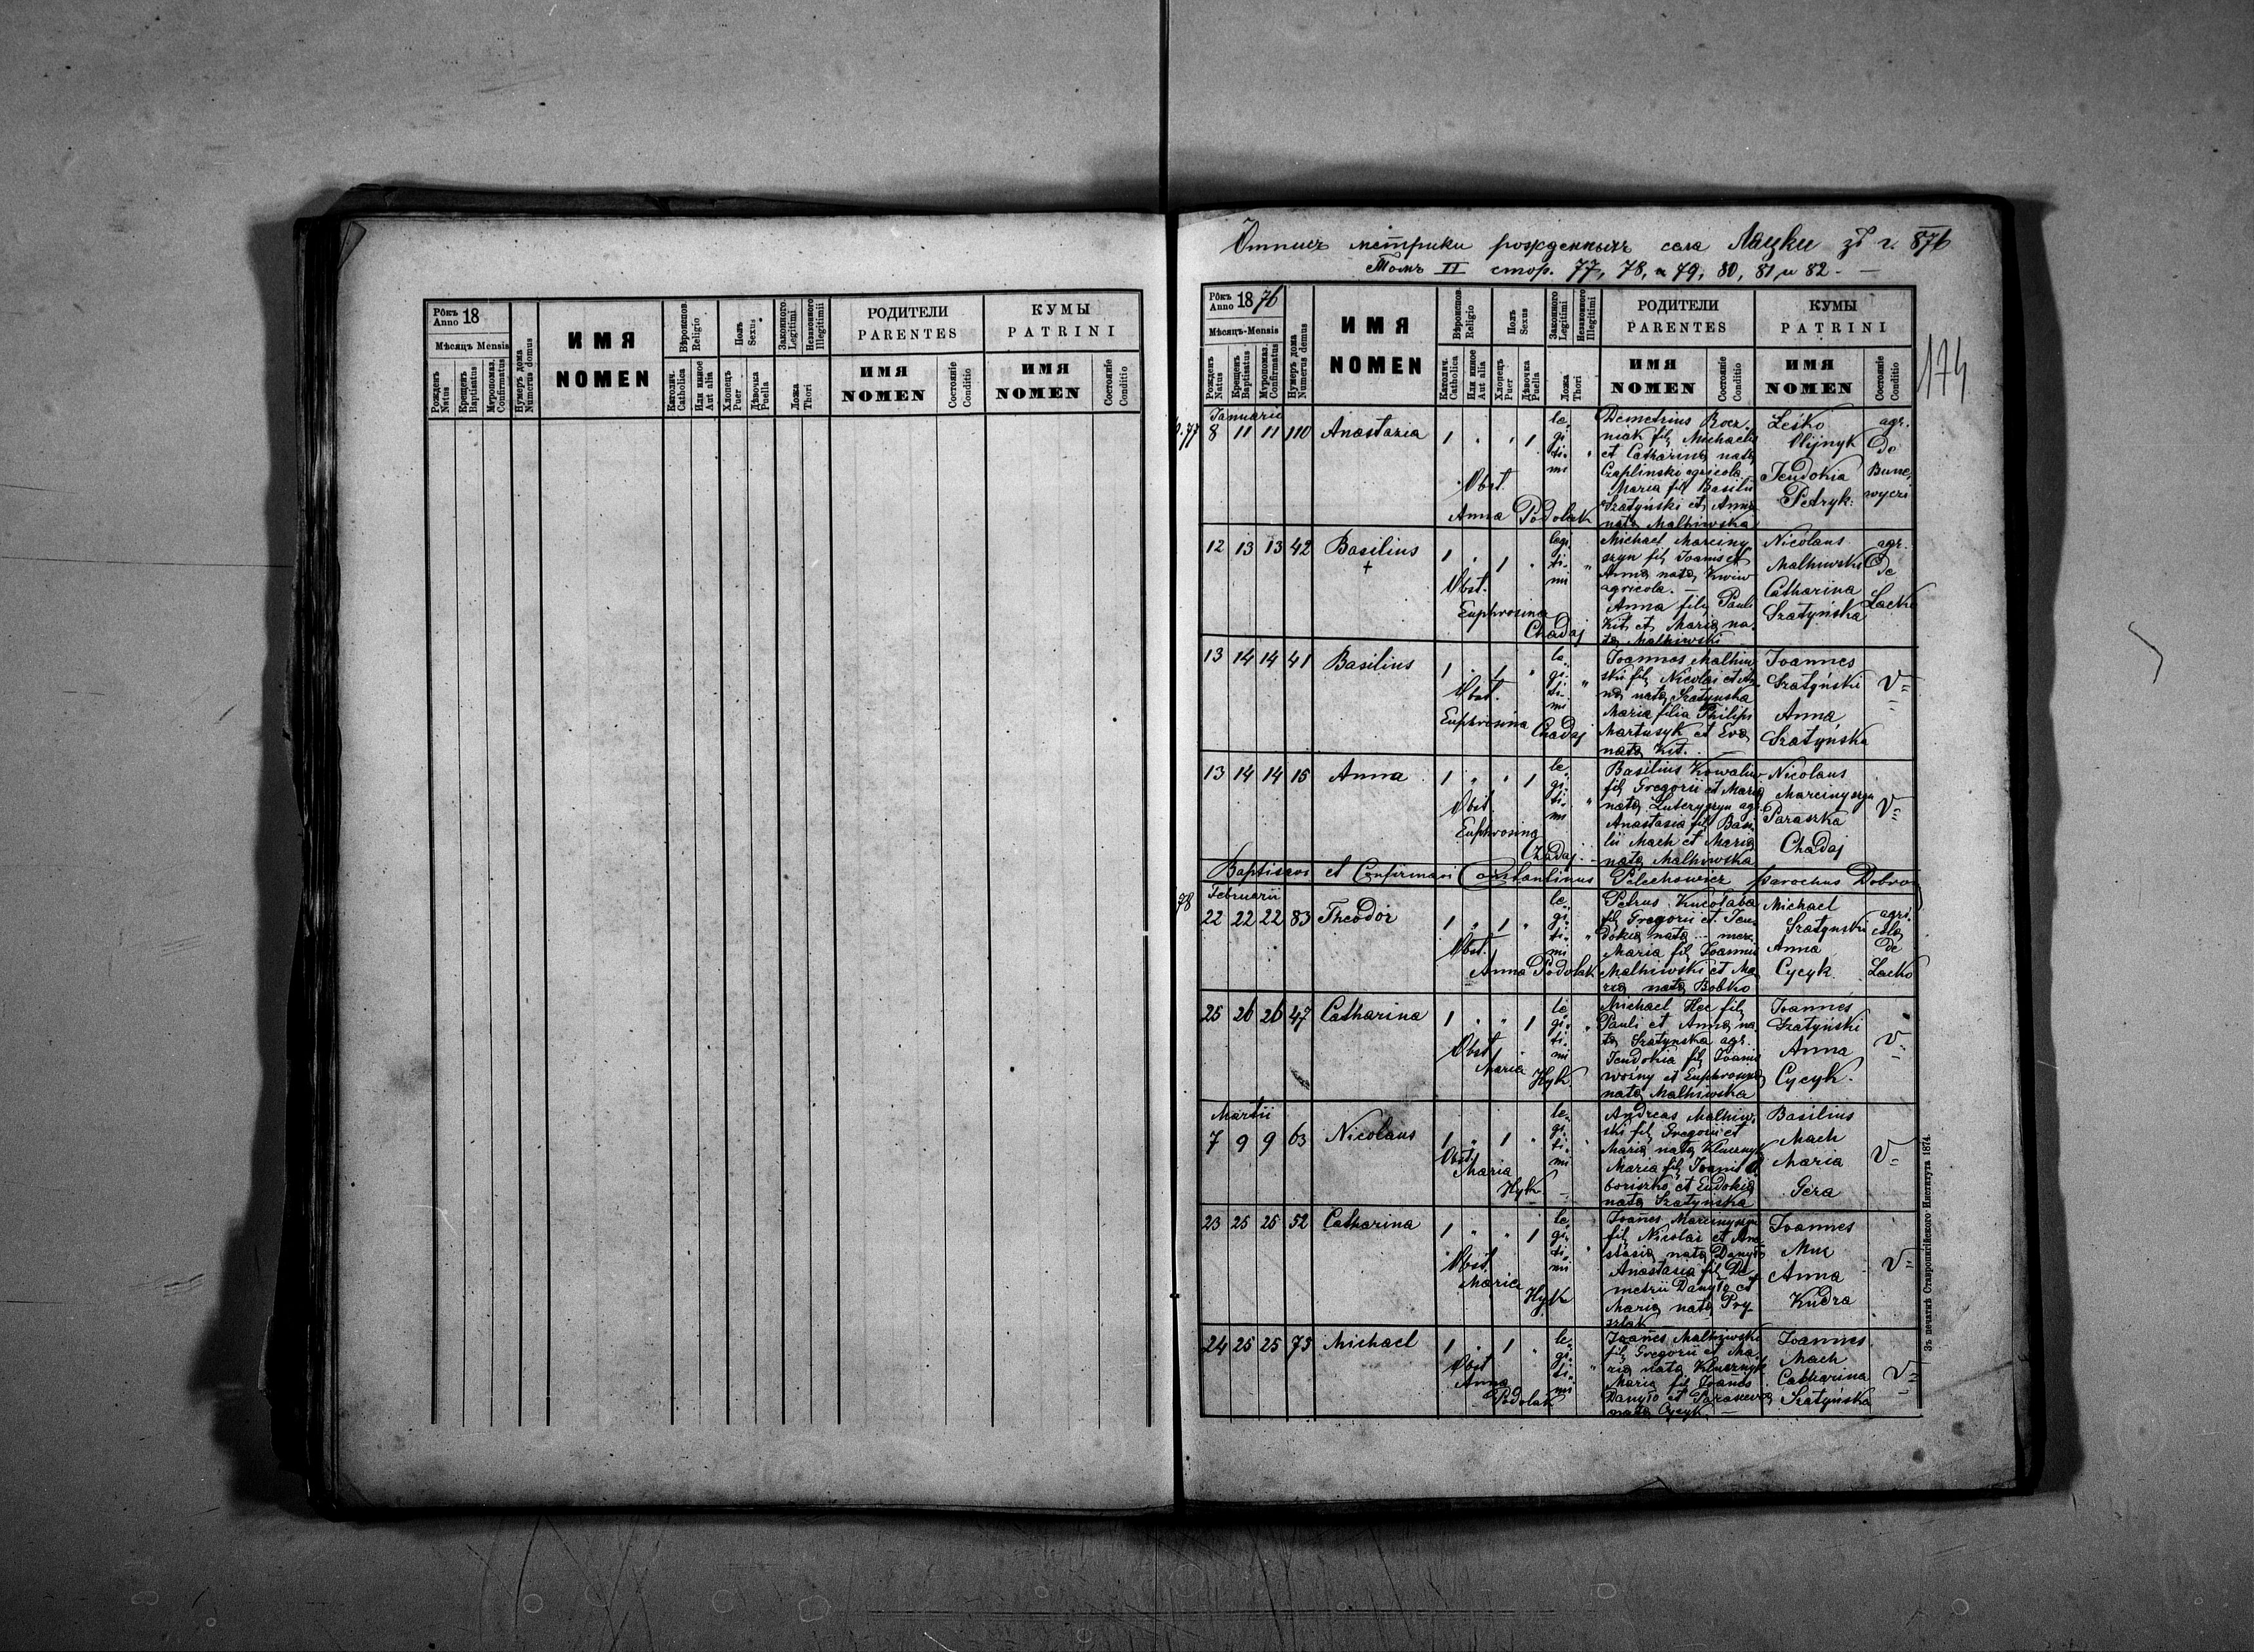 Рôкъ Anno 18
Мѣсяцъ Mensis
Рожденъ Natus
Крещенъ Baptisatus
Мѵропомаз. Confirmatus
Нумеръ дома Numerus domus
ИМЯ
NOMEN
Вѣроиспов. Religio
Католич. Catholica
Или иное Aut alia
Полъ Sexus
Хлопецъ Puer
Дѣвочка Puella
Законного Legitimi
Незконного Illegitimii
Ложа Thori
РОДИТЕЛИ
PARENTES
ИМЯ
NOMEN
Состоянiе Conditio
КУМЫ
PATRINI
ИМЯ
NOMEN
Состоянiе Conditio
метрики рожденныхъ села Лацки зъ г. 876
Томъ II стор. 77, 78, 79, 80, 81, и 82. —
174
Рôкъ Anno 1876
Мѣсяцъ-Mensis
Рожденъ Natus
Крещенъ Baptisatus
Мѵропомаз. Confirmatus
Нумеръ дома Numerus domus
ИМЯ
NOMEN
Вѣроиспов. Religio
Католич. Catholica
Или иное Aut alia
Полъ Sexus
Хлопецъ Puer
Дѣвочка Puella
Законного Legitimi
Незконного Illegitimi
Ложа Thori
РОДИТЕЛИ
PARENTES
ИМЯ
NOMEN
Состоянiе Conditio
КУМЫ
PATRINI
ИМЯ
NOMEN
Состоянiе Conditio
77
Januarii
8 11 11 110 Anastazia 1 " " 1
le
gi
ti
mi
Obst.
Anna Podolak
Demetrius Rocz
niak fil Michaelis
et Catharina nata
Czaplinski agricola
Maria fil Basilii
Szatyński et Anna
nata Malhiwska
Leśko
Olijnyk
Jeudokia
Petryk
agr.
de
12 13 13 42 Basilius 1 " 1 "
+
legi
ti
mi
Obst.
Euphrosina
Chadaj
Michael Marciny
szyn fil Joanis et
Anna nata
agricola. —
Anna fil Pauli
Kit et Maria na
ta Malhiwski
Nicolaus
Malhiwski
Catharina
Szatyńska
agr.
de
Lacki
13 14 14 41 Basilius 1 " 1 "
le
gi
ti
mi
Obst.
Euphrosina Chadaj
Joannes Malhiw
ski fil Nicolai et An
na nata Szatynska
Maria filia Philipi
Martusyk et Eva
nata Kit.
Joannes
Szatyński
Anna
Szatyńska
13 14 14 15 Anna 1 " " 1
le
gi
ti
mi
Obst.
Euphrosina
Chadaj
Basilius Kowaliw
fil Gregorii et Maria
nata agr.
Anastasia fil Basi
lii Mach et Maria
nata Malhiwska
Nicolaus
Marcinyszyn
Paraszka
Chadaj
Baptisavi et Confirmavi Constantinus Pelechowicz parochus
78
Februarii
22 22 22 83 Theodor 1 " 1 "
le
gi
ti
mi
Obst.
Anna Podolak
Petrus Kucołaba
fil Gregorii et Jeu
dokia nata
Maria fil Joannis
Malhiwski et Ma
ria nata Bobko
Michael
Szatynski
Anna
Cycyk
agri
cola
de
Lacko
25 26 26 47 Catharina 1 " " 1
le
gi
ti
mi
Obst.
Maria
Hyk
Michael Hec fil
Pauli et Anna na
ta Szatynska agr.
Jeudokia fil Joanis
woźny et Euphrosina
nata Malhiwska
Joannes
Szatyński
Anna
Cycyk.
Martii
7 9 9 63 Nicolaus 1 " 1 "
le
gi
ti
mi
Obst.
Maria
Hyk
Andreas Malhiw
ski fil Gregorii et
Maria nata Klucznyk
Maria fil Joanis
et Eudokia
nata Szatyńska
Basilius
Mach
Maria
Gera
23 25 25 52 Catharina 1 " " 1
le
gi
ti
mi
Obst.
Maria
Hyk
Joanes Marcinyszyn
fil Nicolai et Ana
stasia nata Danyło
Anastasia fil De
metrii Danyło et
Maria nata Pry
szlak
Joannes
Anna
Kudra
24 25 25 73 Michael 1 " 1 "
le
gi
ti
mi
Obst.
Anna
Podolak
Joanes Malhiwski
fil Gregorii et Ma
ria nata Klucznyk
Maria fil Joanes
Danyło et Parascevia
nata Cycyk. —
Joannes
Mach
Catharina
Szatyńska
Зъ печатнѣ Ставропигійского Института 1874.